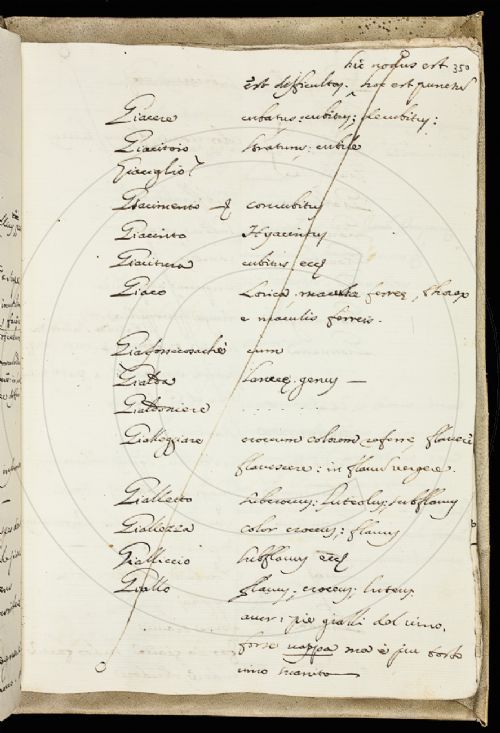 hic nodus est 350
est difficultas. hoc est punctus
Giacere cubatus; cubitus; decubitus;
Giacitoio stratum; cubile
Giaciglio
Giacimento concubitus
Giacinto Hyacintus
Giacitura cubitus
Giaco Lorica ferrea, thorax
e maculis ferreis.
cum
Gialda lanceae genus —
Gialdoniere . . . . . .
Gialleggiare crocum colorem flavere
flavescere: in flavus vergere.
Gialletto luteolus; subflavus
Giallezza color croceus; flavus
Gialliccio subflavus
Giallo flavus, croceus; luteus
gialli del vino.
forse vappa ma è piu forte
vino